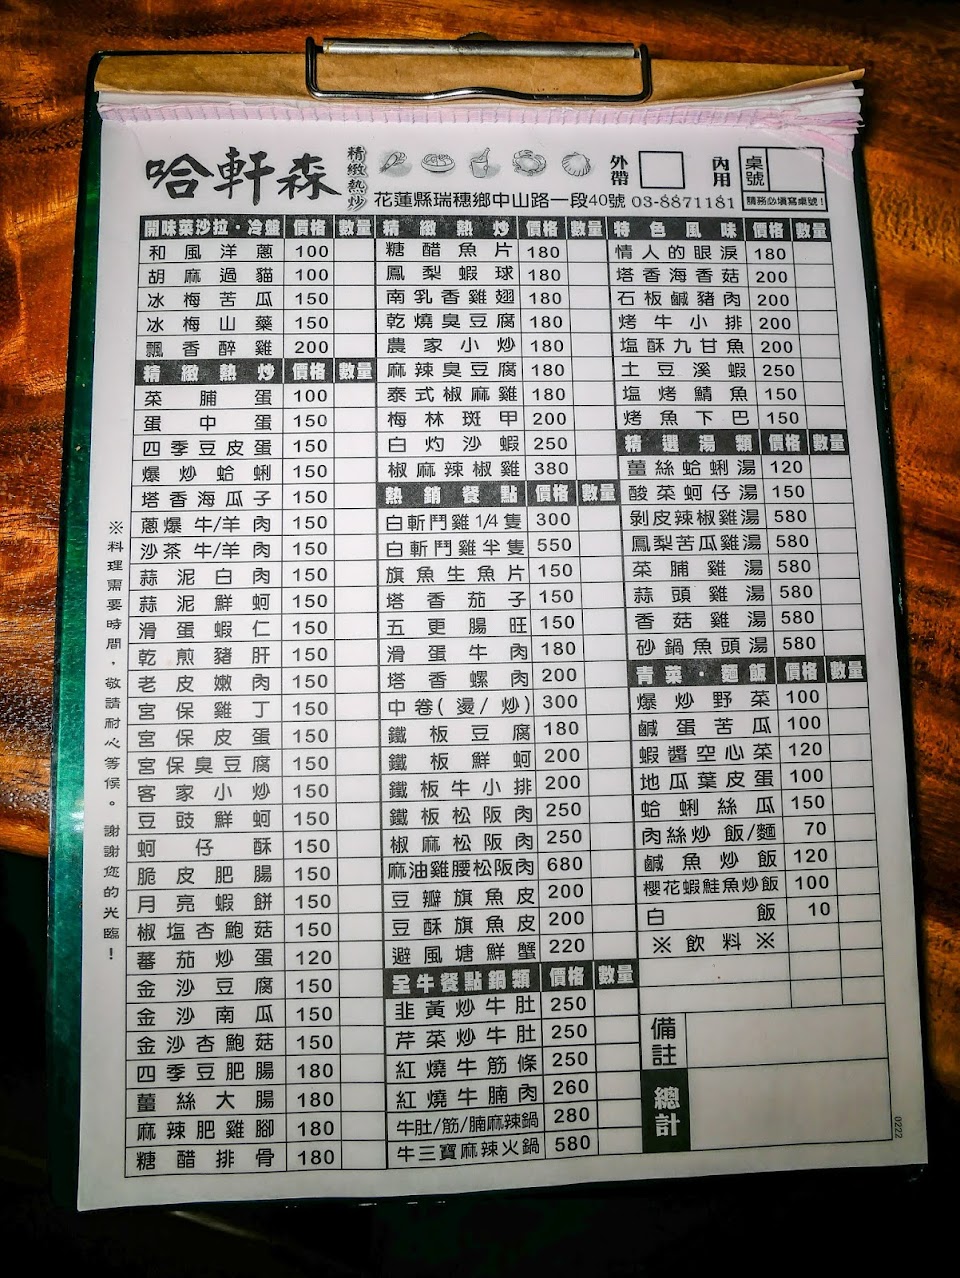 哈軒森 精緻熱炒
外帶
內用
桌號
請務必填寫桌號!
花蓮縣瑞穗鄉中山路一段40號 03-8871181
開味菜沙拉・冷盤 價格 數量
和風洋蔥 100
胡麻過貓 100
冰梅苦瓜 150
冰梅山藥 150
飄香醉雞 200
精緻熱炒 價格 數量
菜脯蛋 100
蛋中蛋 150
四季豆皮蛋 150
爆炒蛤蜊 150
塔香海瓜子 150
蔥爆牛/羊肉 150
沙茶牛/羊肉 150
蒜泥白肉 150
蒜泥鮮蚵 150
滑蛋蝦仁 150
乾煎豬肝 150
老皮嫩肉 150
宮保雞丁 150
宮保皮蛋 150
宮保臭豆腐 150
客家小炒 150
豆豉鮮蚵 150
蚵仔酥 150
脆皮肥腸 150
月亮蝦餅 150
椒塩杏鮑菇 150
蕃茄炒蛋 120
金沙豆腐 150
金沙南瓜 150
金沙杏鮑菇 150
四季豆肥腸 180
薑絲大腸 180
麻辣肥雞腳 180
糖醋排骨 180
精緻熱炒 價格 數量
糖醋魚片 180
鳳梨蝦球 180
南乳香雞翅 180
乾燒臭豆腐 180
農家小炒 180
麻辣臭豆腐 180
泰式椒麻雞 180
梅林斑甲 200
白灼沙蝦 250
椒麻辣椒雞 380
熱銷餐點 價格 數量
白斬鬥雞1/4隻 300
白斬鬥雞半隻 550
旗魚生魚片 150
塔香茄子 150
五更腸旺 150
滑蛋牛肉 180
塔香螺肉 200
中卷(燙/炒) 300
鐵板豆腐 180
鐵板鮮蚵 200
鐵板牛小排 200
鐵板松阪肉 250
椒麻松阪肉 250
麻油雞腰松阪肉 680
豆瓣旗魚皮 200
豆酥旗魚皮 200
避風塘鮮蟹 220
全牛餐點鍋類 價格 數量
韭黃炒牛肚 250
芹菜炒牛肚 250
紅燒牛筋條 250
紅燒牛腩肉 260
牛肚/筋/腩麻辣鍋 280
牛三寶麻辣火鍋 580
特色風味 價格 數量
情人的眼淚 180
塔香海香菇 200
石板鹹豬肉 200
烤牛小排 200
塩酥九甘魚 200
土豆溪蝦 250
塩烤鯖魚 150
烤魚下巴 150
精選湯類 價格 數量
薑絲蛤蜊湯 120
酸菜蚵仔湯 150
剝皮辣椒雞湯 580
鳳梨苦瓜雞湯 580
菜脯雞湯 580
蒜頭雞湯 580
香菇雞湯 580
砂鍋魚頭湯 580
青菜・麵飯 價格 數量
爆炒野菜 100
鹹蛋苦瓜 100
蝦醬空心菜 120
地瓜葉皮蛋 100
蛤蜊絲瓜 150
肉絲炒飯/麵 70
鹹魚炒飯 120
櫻花蝦鮭魚炒飯 100
白飯 10
※飲料※
備註
總計
0222
※料理需要時間，敬請耐心等候。謝謝您的光臨!